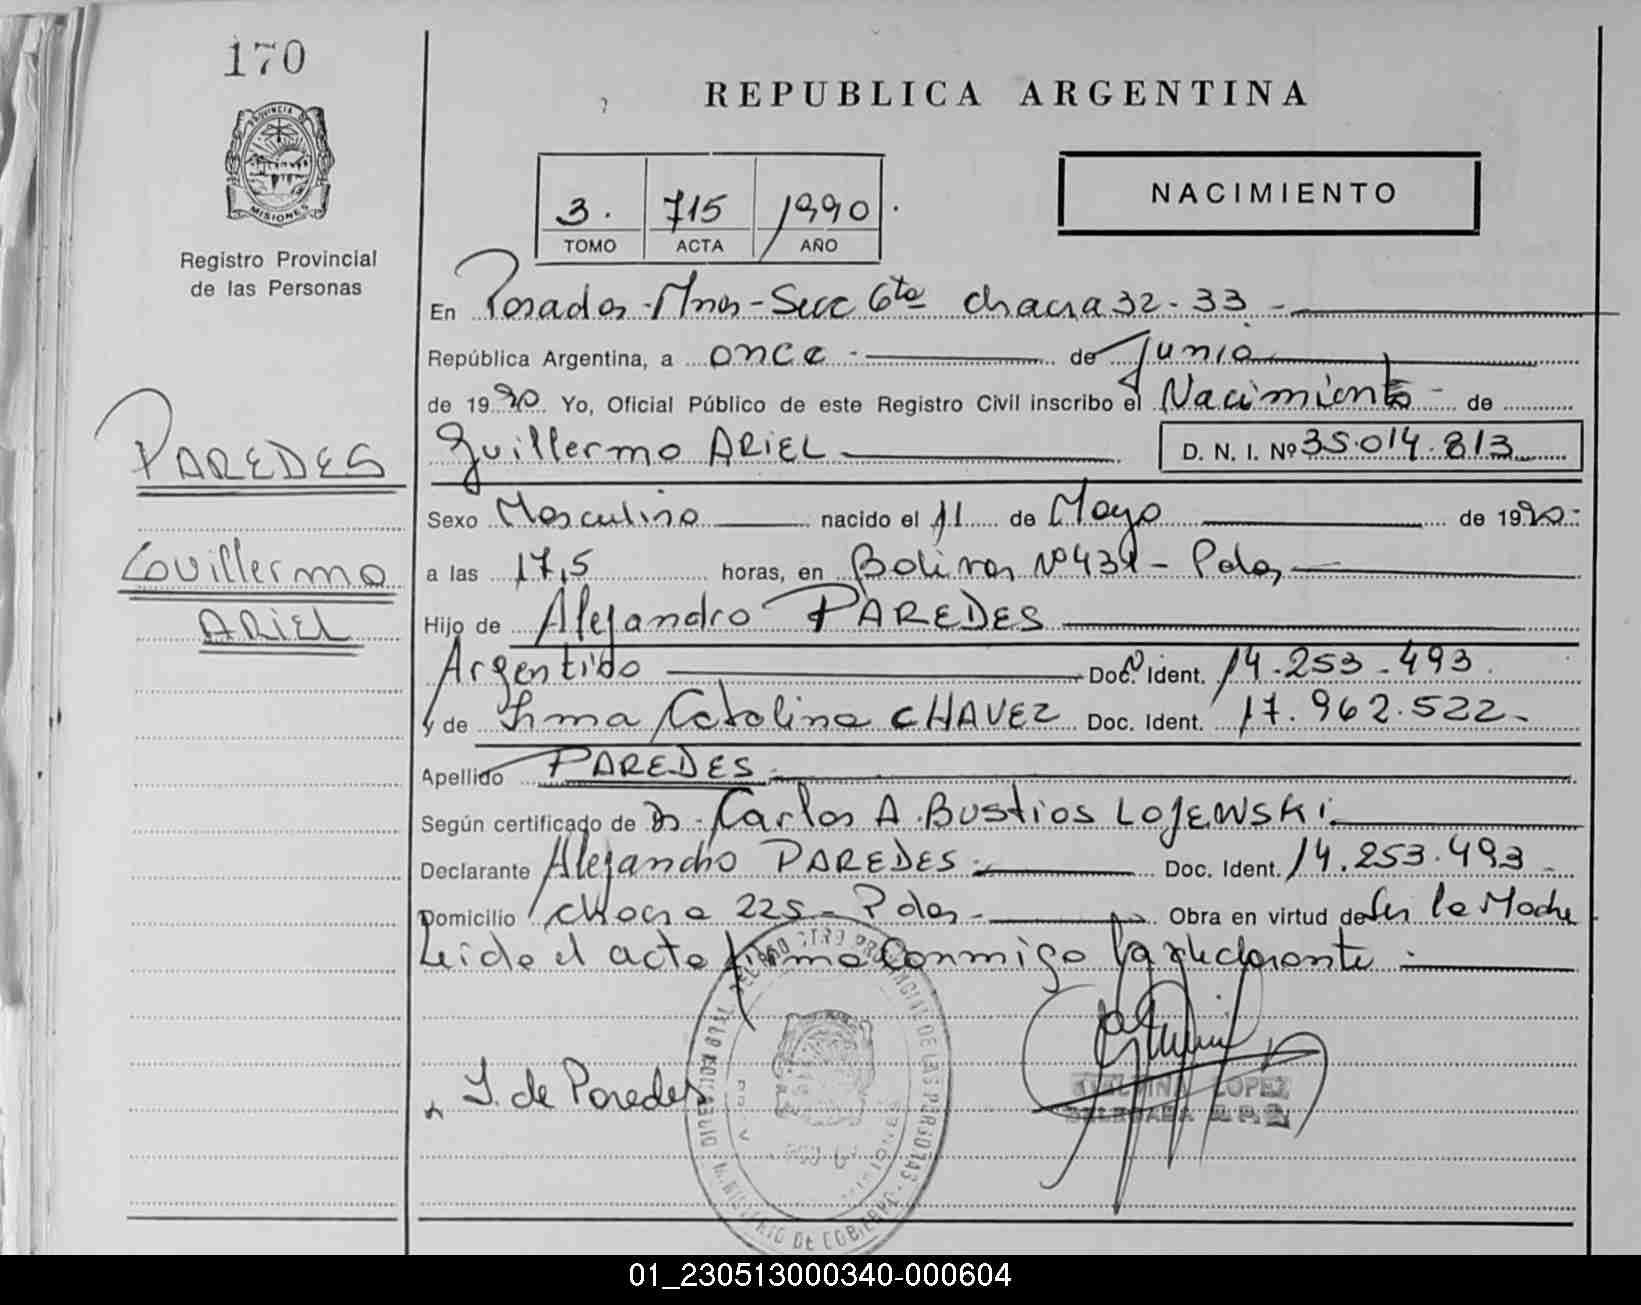 170
REPUBLICA ARGENTINA
PROVINCIA DE
MISIONES
Registro Provincial
de las Personas
3. 715 1990
TOMO ACTA AÑO
NACIMIENTO
En Posadas-Mnes-Secc 6ta chacra 32-33
República Argentina, a once de Junio
de 1990 Yo, Oficial Público de este Registro Civil inscribo el Nacimiento de
Guillermo ARIEL D. N. I. Nº 35.014.813
PAREDES
Guillermo
ARIEL
Sexo Masculino nacido el 11 de Mayo de 1990
a las 17,5 horas, en Bolivar Nº - Pdas,
Hijo de Alejandro PAREDES
Argentino Doc. Ident. 14.253.493
y de Irma Catalina CHAVEZ Doc. Ident. 17.962.522-
Apellido PAREDES
Según certificado de Dr. Carlos A. Bustios LOJEWSKI.
Declarante Alejandro PAREDES Doc. Ident. 14.253.493
Domicilio chacra 225-Pdas- Obra en virtud de Ser la Madre
Leida el acta firma conmigo la declarante
I. de Paredes
LOPEZ
DELEGADA
MINISTERIO DE GOBIERNO
01_230513000340-000604